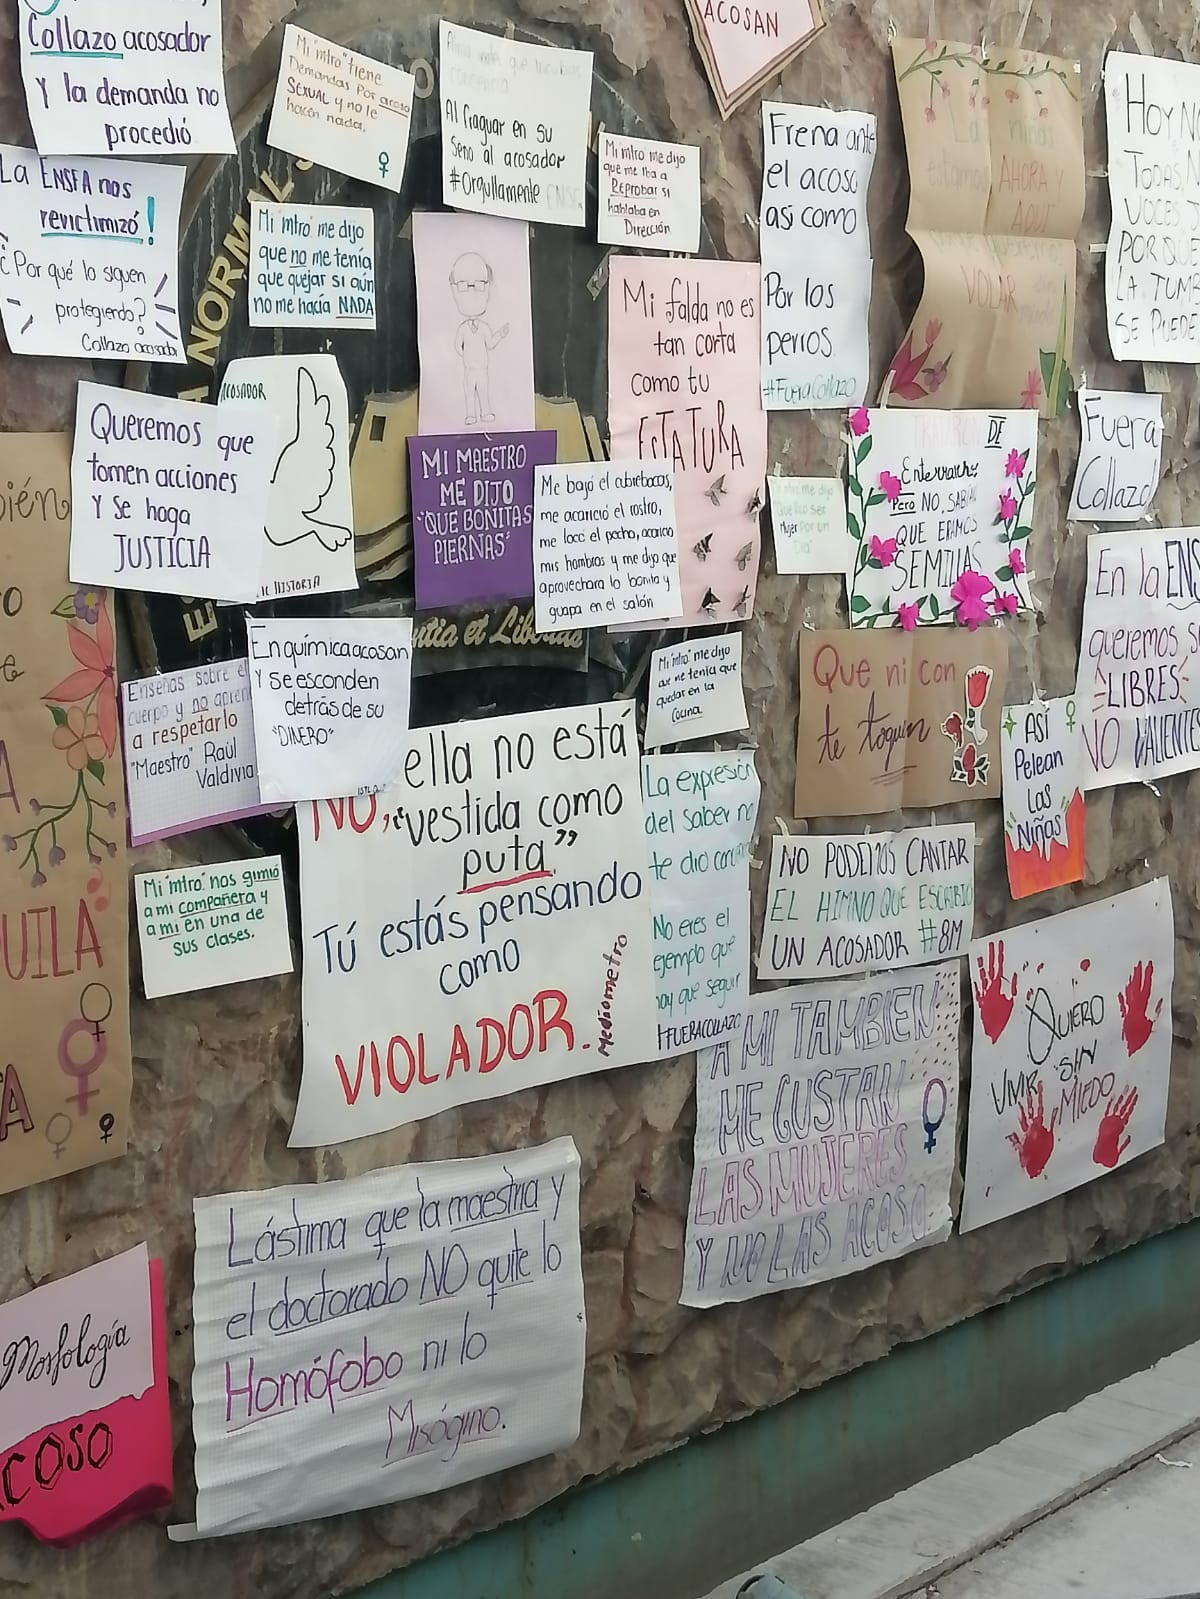 ACOSAN
Collazo acosador
y la demanda no
procedió.
Mi "mtro" tiene
Demandas por acoso
SEXUAL y no le
hacen nada.
Al fraguar en su
seno al acosador
#Orgullamente ENSFA
Mi mtro me dijo
que me iba a
Reprobar si
hablaba en
Dirección.
Frena ante
el acoso
así como
Por los
perros.
#FueraCollazo
AHORA Y
AQUÍ
VOLAR
HOY N
TODAS, N
VOCES, T
PORQUE
LA TUM
SE PUEDE
La ENSFA nos
revictimizó!
¿Por qué lo siguen
protegiendo?
Collazo acosador
Mi mtro me dijo
que no me tenía
que quejar si aún
no me hacía NADA
NORMAL S
Mi falda no es
tan corta
como tu
ESTATURA
Queremos que
tomen acciones
Y se haga
JUSTICIA
ACOSADOR
HISTORIA
MI MAESTRO
ME DIJO
"QUE BONITAS
PIERNAS"
Me bajó el cubrebocas,
me acarició el rostro,
me tocó el pecho, acarició
mis hombros y me dijo que
aprovechara lo bonita y
guapa en el salón
DE
Enterrarnos
Pero NO, SABÍAN
QUE ERAMOS
SEMILLAS
Fuera
Collazo
En la ENS
queremos s
LIBRES
NO VALIENTES
ntia et Libertas
Enseñas sobre el
cuerpo y no apren
a respetarlo
"Maestro" Raúl
Valdivia
En química acosan
Y se esconden
detrás de su
"DINERO"
Mi "mtro" me dijo
que me tenía que
quedar en la
Cocina
Que ni con
te toquen
ASÍ
Pelean
Las
Niñas
NO, ella no está
"vestida como
puta"
Tú estás pensando
como
VIOLADOR.
Mediometro
La expresión
del saber no
te dio
No eres el
ejemplo que
hay que seguir
#FUERACOLLAZO
NO PODEMOS CANTAR
EL HIMNO QUE ESCRIBIÓ
UN ACOSADOR #8M
Mi "mtro" nos gimió
a mi compañera y
a mí en una de
sus clases.
A MI TAMBIEN
ME GUSTAN
LAS MUJERES
Y NO LAS ACOSO
QUIERO
VIVIR SIN
MIEDO
Lástima que la maestria y
el doctorado NO quite lo
Homófobo ni lo
Misógino.
Morfología
ACOSO